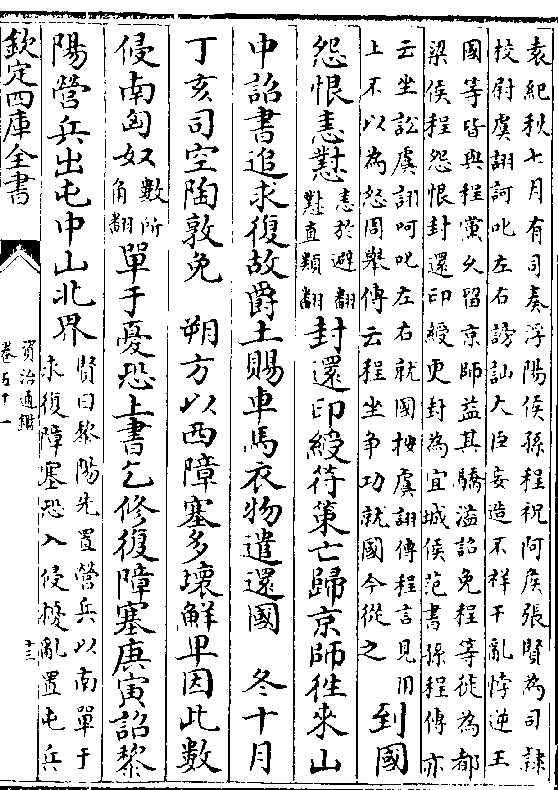 袁紀秋七月有司奏浮陽侯孫程祝阿侯張賢為司隸
校尉虞詡訶叱左右謗訕大臣妄造不祥干亂悖逆王
國等皆與程黨久留京師益其驕溢詔免程等徙為都
梁侯程怨恨封還印綬更封為宜城侯范書孫程傳亦
云坐訟虞詡呵叱左右就國按虞詡傳程言見用
上不以為怒周舉傳云程坐爭功就國今從之
到國
怨恨恚懟
恚於避翻
懟直類翻
封還印綬符策亡歸京師往來山
中詔書追求復故爵土賜車馬衣物遣還國 冬十月
丁亥司空陶敦免 朔方以西障塞多壞鮮卑因此數
侵南匈奴
數所
角翻
單于憂恐上書乞修復障塞庚寅詔黎
陽營兵出屯中山北界
賢曰黎陽先置營兵以南單于
求復障塞恐入侵擾亂置屯兵
欽定四庫全書
資治通鑑
卷五十一
十三